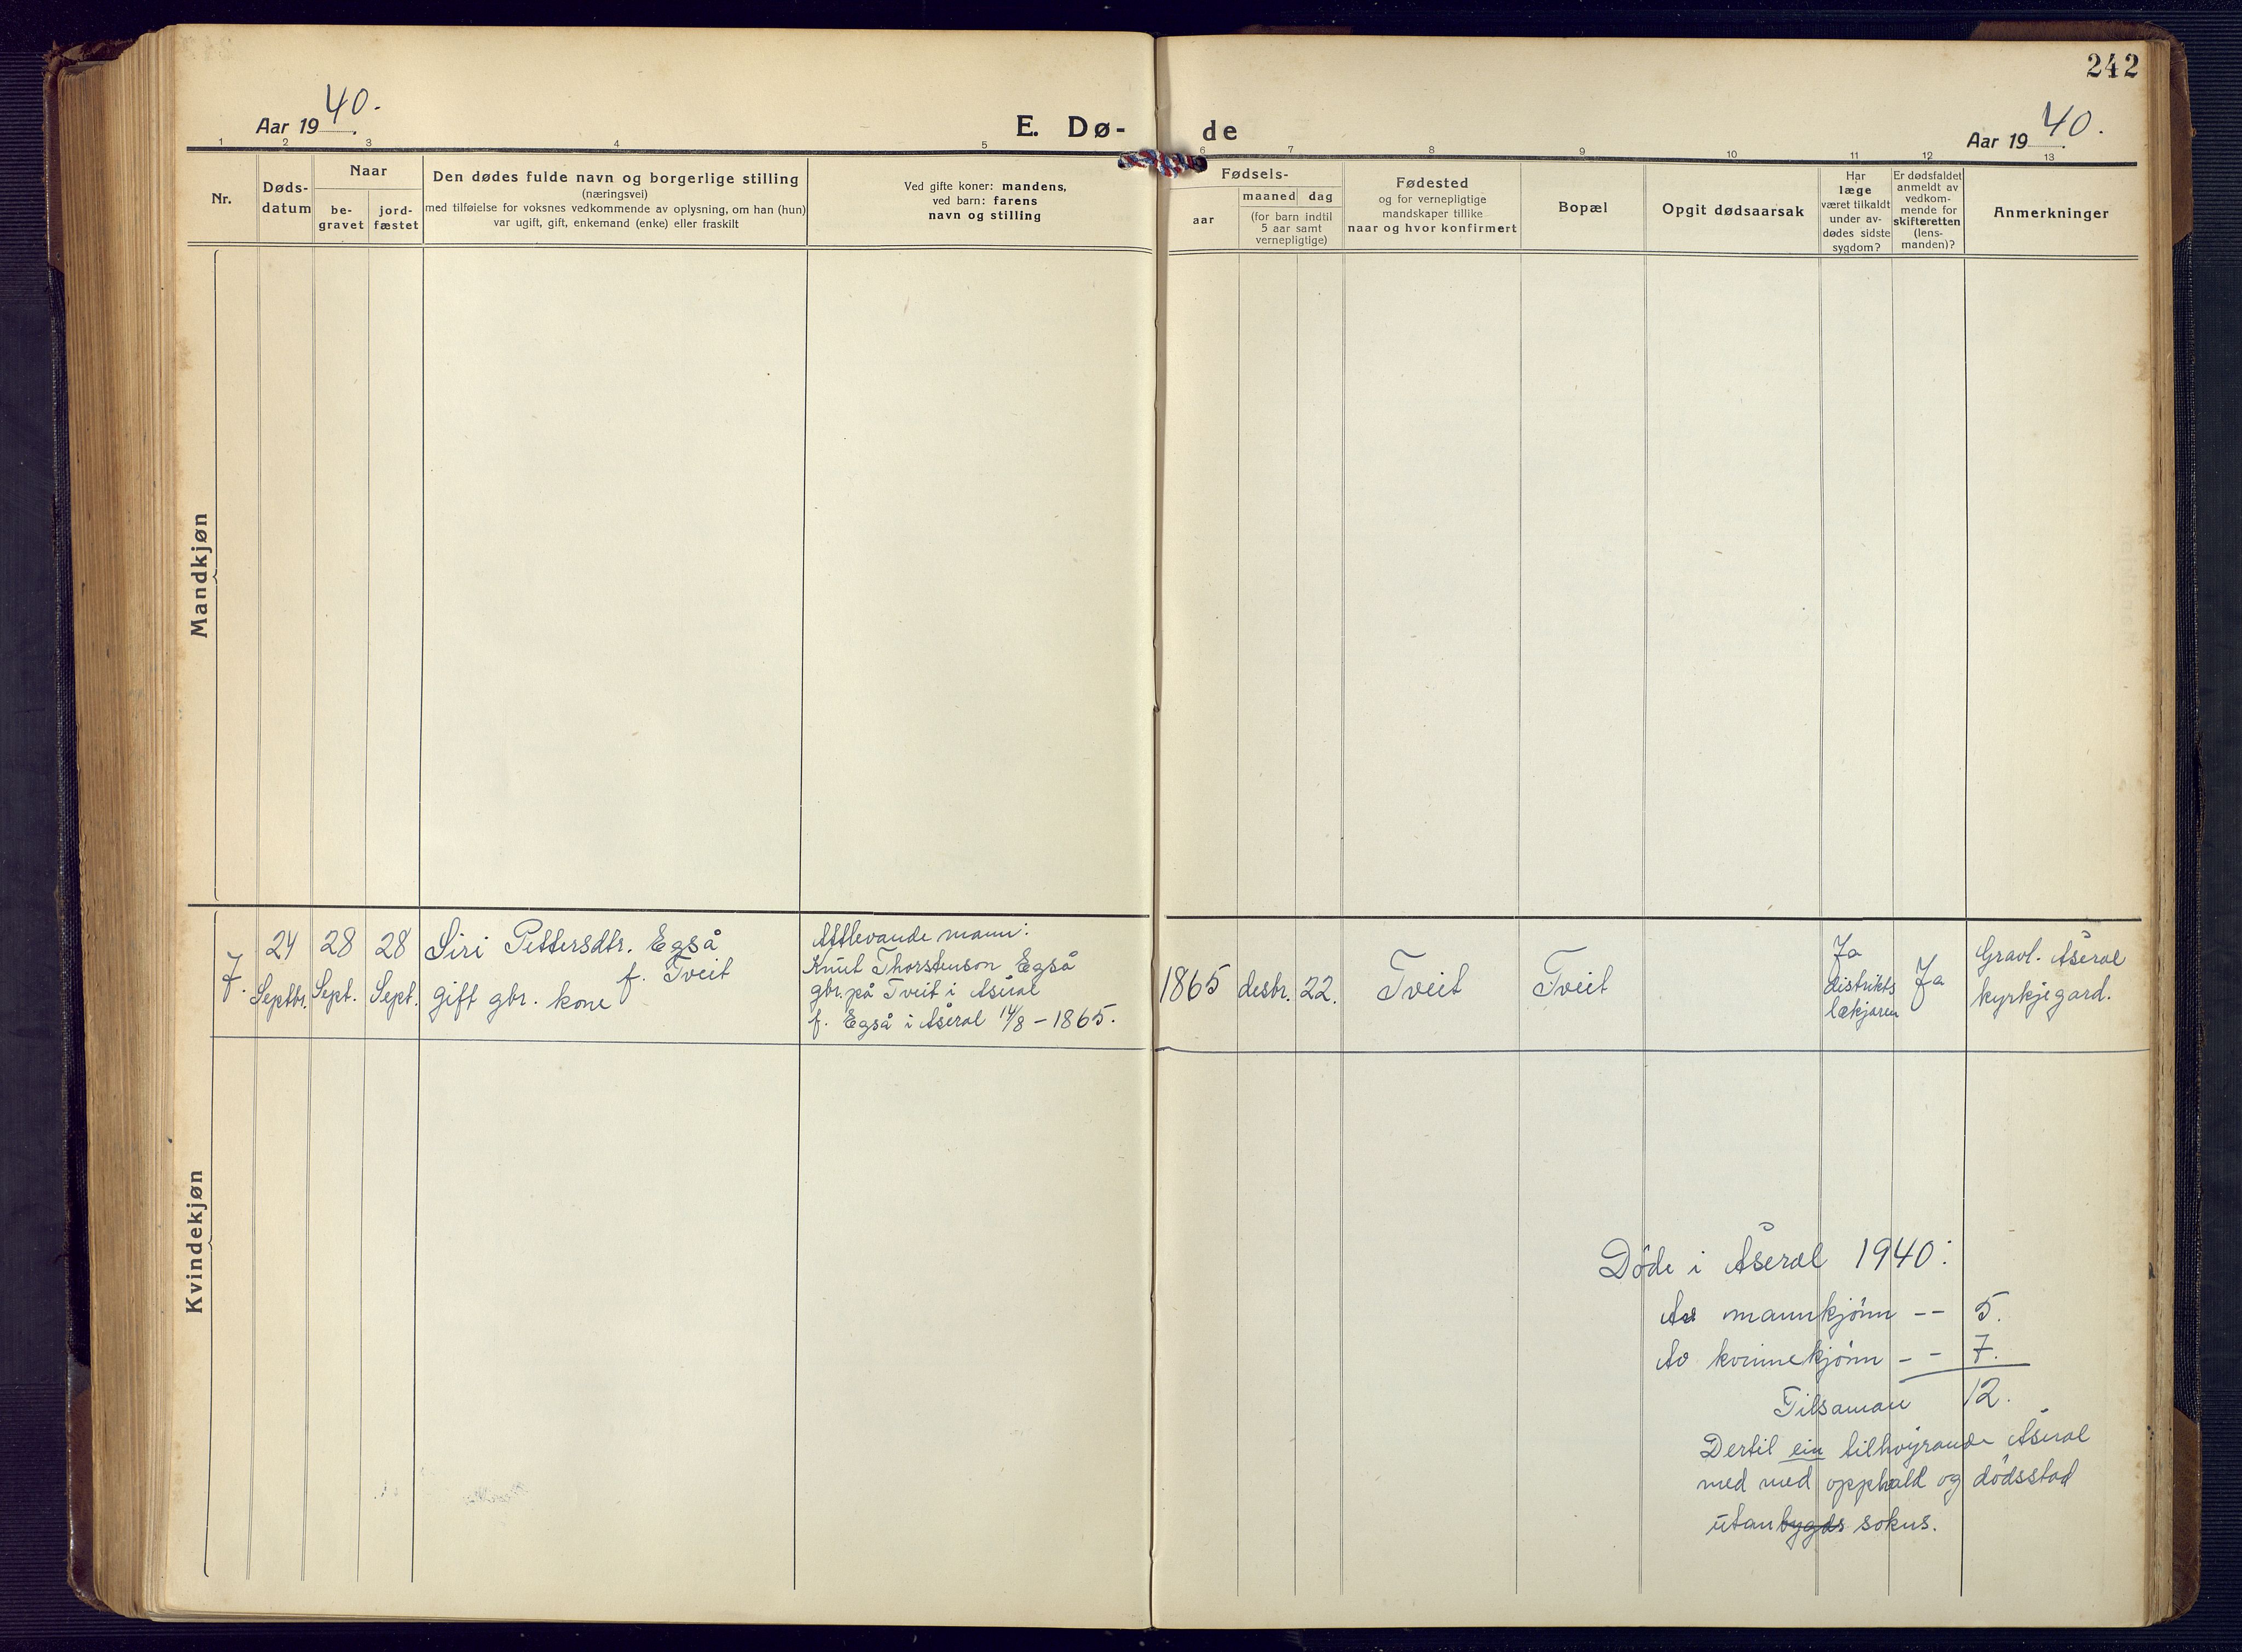 242
Aar 1940.
E. Dø-
de
Aar 1940.
1 2 3 4 5 6 7 8 9 10 11 12 13
Nr.
Døds-
datum
Naar
be-
gravet
jord-
fæstet
Den dødes fulde navn og borgerlige stilling
(næringsvei)
med tilføielse for voksnes vedkommende av oplysning, om han (hun)
var ugift, gift, enkemand (enke) eller fraskilt
Ved gifte koner: mandens,
ved barn: farens
navn og stilling
Fødsels-
aar
maaned dag
(for barn indtil
5 aar samt
vernepligtige)
Fødested
og for vernepligtige
mandskaper tillike
naar og hvor konfirmert
Bopæl
Opgit dødsaarsak
Har
læge
været tilkaldt
under av-
dødes sidste
sygdom?
Er dødsfaldet
anmeldt av
vedkom-
mende for
skifteretten
(lens-
manden)?
Anmerkninger
Mandkjøn
Kvindekjøn
7.
24
Septbr.
28
Sept.
28
Sept.
Siri Pettersdtr. Egså
f. Tveit
gift gbr. kone
Attlevande mann:
Knut Thorstenson Egså
gbr. på Tveit i Åseral
f. Egså i Åseral 14/8 - 1865.
1865
desbr.
22.
Tveit
Tveit
Ja
distrikts
lækjaren
Ja
Gravl. Åseral
kyrkjegard.
Döde i Åseral 1940:
Av mannkjönn -- 5.
Av kvinnekjönn -- 7.
Tilsaman 12.
Dertil ein tilhøyrande Åseral
med med opphald og dödsstad
utanbygds sokns.